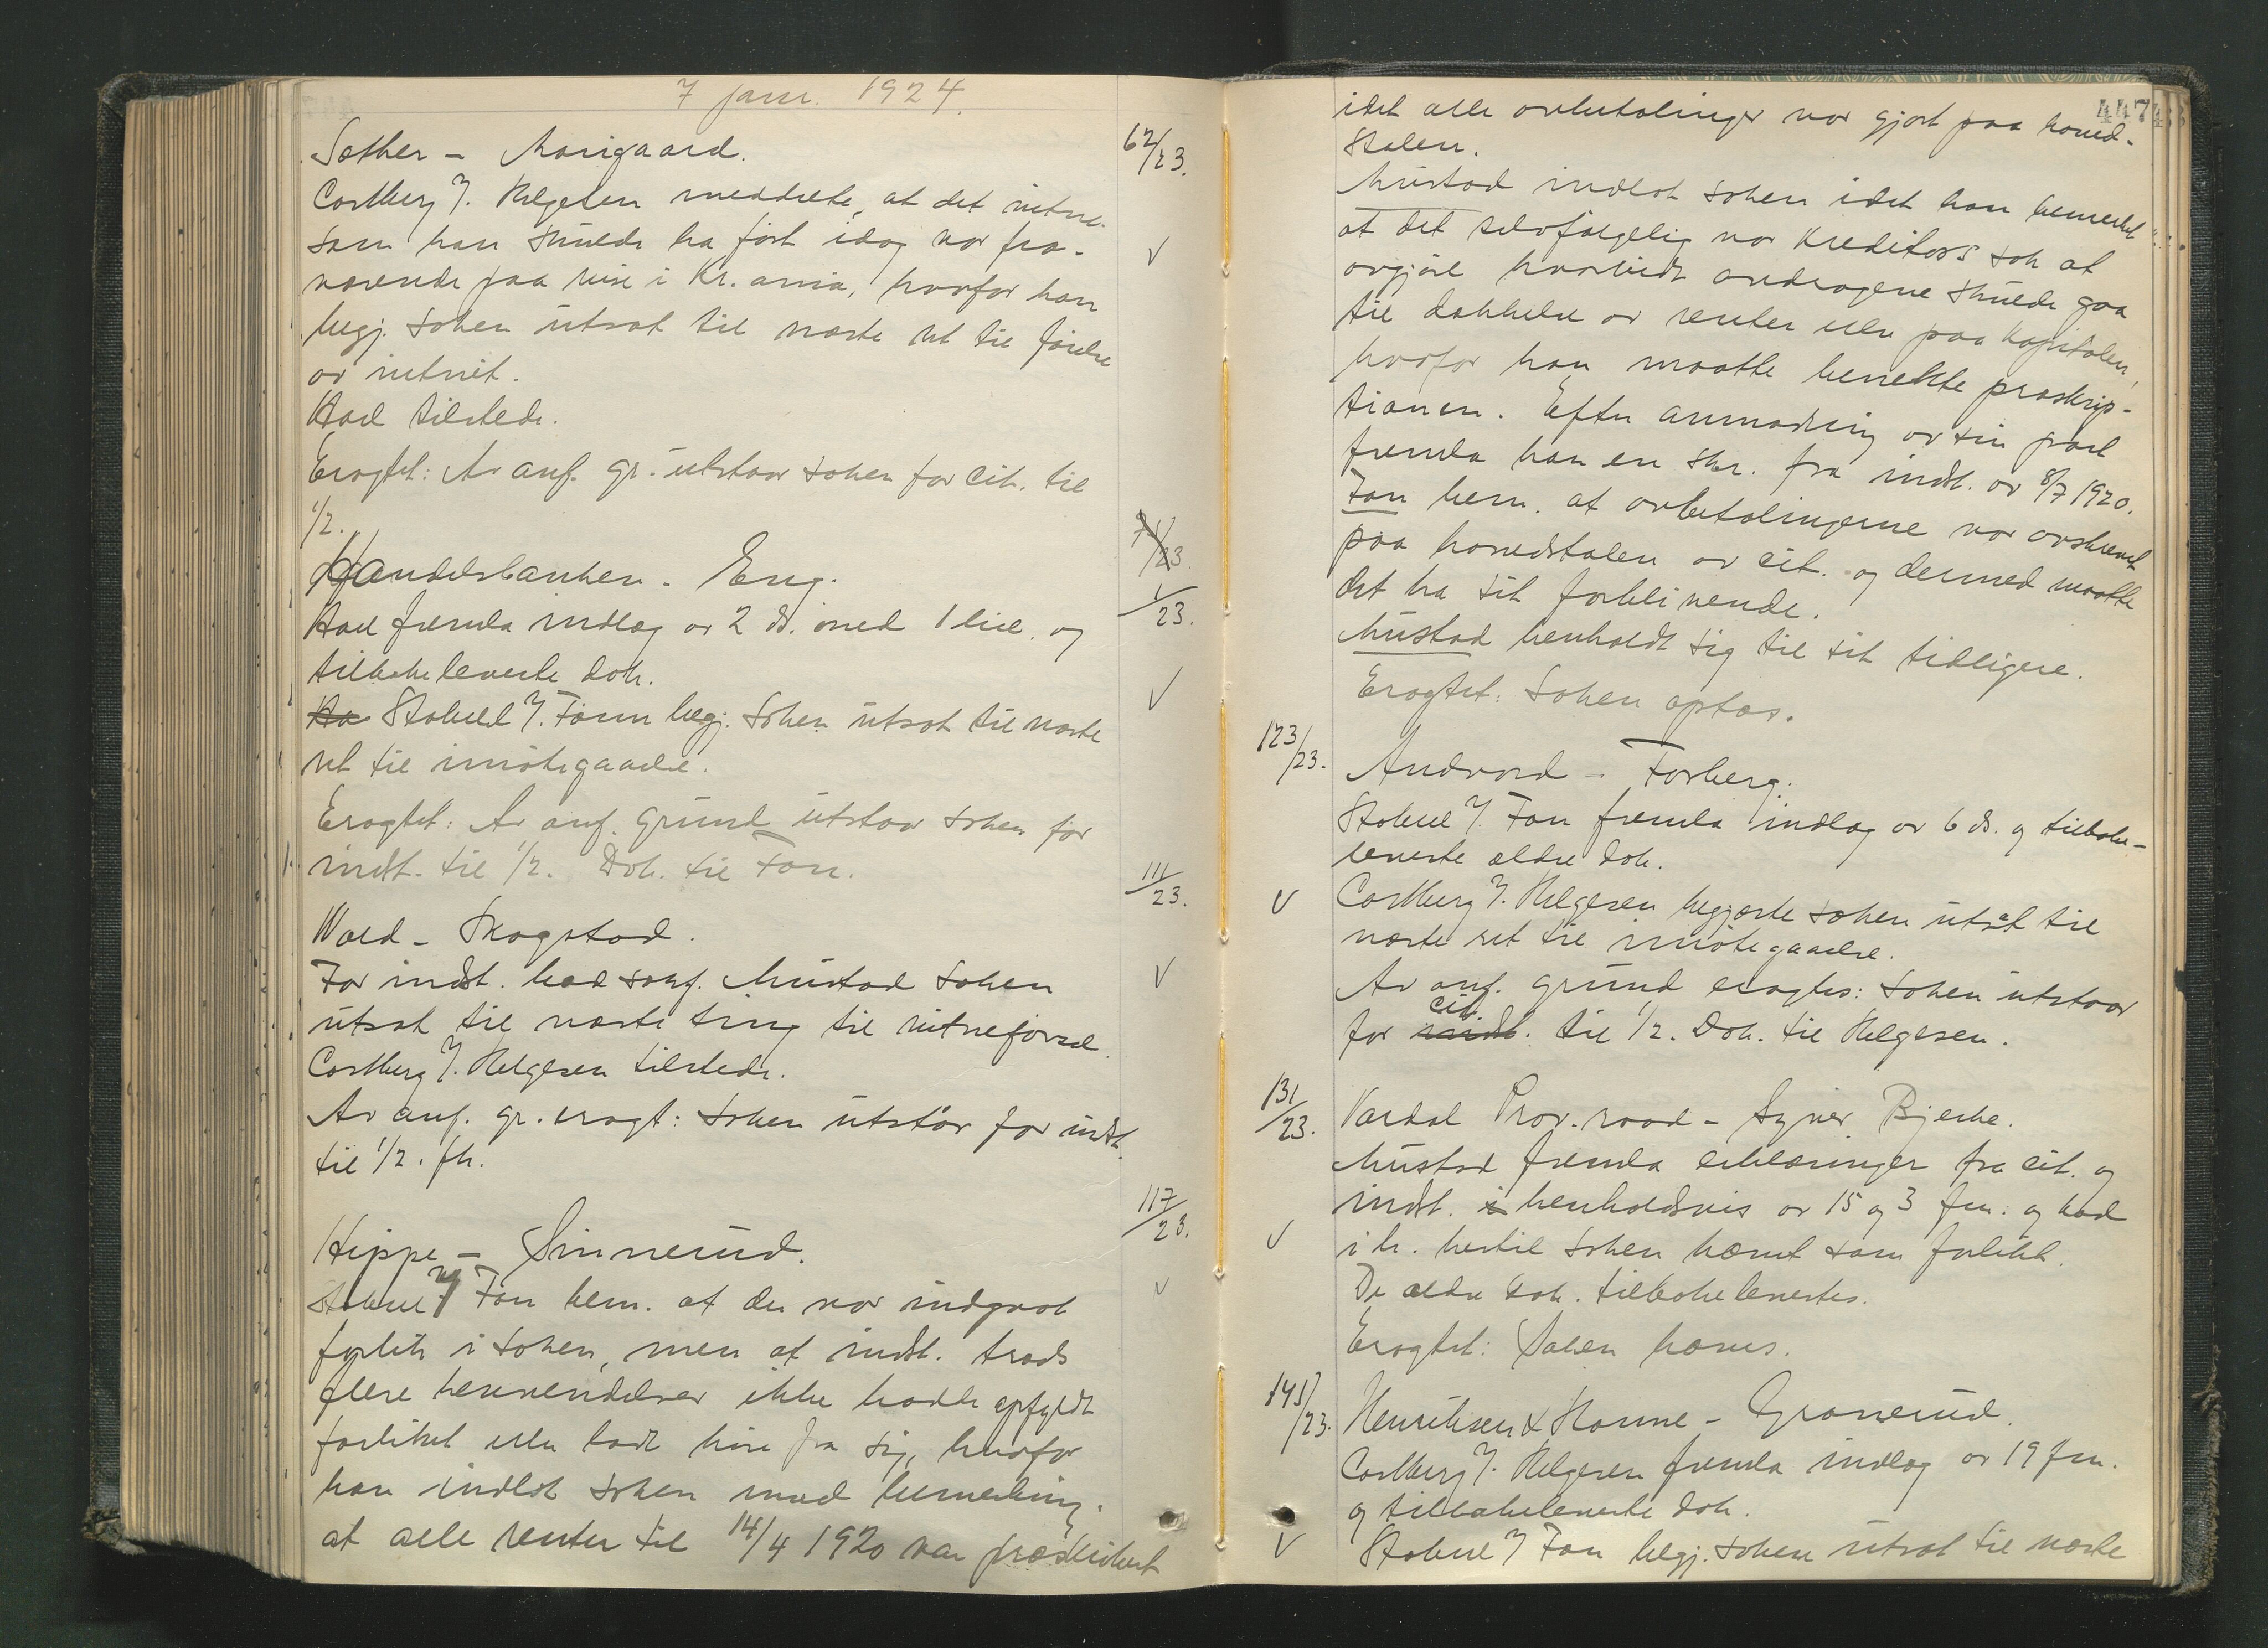 7 janr. 1924.
Sæther – Marigaard.
62/23.
Carlberg f. Helgesen meddelte, at det vitne
som han skulde ha ført idag var fra-
værende paa reise i Kr.ania, hvorfor han
begj. saken utsat til næste ret til førelse
av vitnet.
Hoel tilstede.
Eragtet: Av anf. gr. utstaar saken for cit. til
1/2.
Handelsbanken – Eng.
1/23.
Hoel fremla indlæg av 2 ds. med 1 bil. og
tilbakeleverte dok.
Stabell f. Fonn begj. saken utsat til næste
ret til imøtegaaelse.
Eragtet: Av anf. grund utstaar saken for
indst. til 1/2. Dok. til Fon.
111/23.
Wold – Skogstad.
For indst. bad sakf. Mustad saken
utsat til næste ting til vitneførsel.
Carlberg f. Helgesen tilstede.
Av anf. gr. eragt: Saken utstår for indst.
til 1/2. fk.
117/23.
Hippe – Sinnerud.
Stabell f Fon bem. at der var indgaat
forlik i saken, men at indst. trods
flere henvendelser ikke hadde opfyldt
forliket eller latt høre fra sig, hvorfor
han indlot saken med bemerkning.
at alle renter til 14/4 1920 var præskribert
447
idet alle avbetalinger var gjort paa hoved-
stolen.
Mustad indlot saken idet han bemerket
at det selvfølgelig var kreditors sak at
avgjøre hvorvidt avdragene skulde gaa
til dækkelse av renter eller paa kapitalen,
hvorfor han maatte benekte præskrip-
tionen. Efter anmodning av sin part
fremla han en skr. fra indst. av 8/7 1920.
Fon bem. at avbetalingerne var avskrevet
paa hovedstolen av cit. og dermed maatte
det ha sit forblivende.
Mustad henholdt sig til sit tidligere.
Eragtet: Saken optas.
123/23.
Andvord – Forberg.
Stabell f. Fon fremla indlæg av 6 ds. og tilbake-
leverte ældre dok.
Carlberg f. Helgesen begjærte saken utsat til
næste ret til imøtegaaelse.
Av anf. grund eragtes: Saken utstaar
for cit. til 1/2. Dok. til Helgesen.
131/23.
Vardal Prov.raad – Syver Bjerke.
Mustad fremla erklæringer fra cit. og
indst. henholdsvis av 15 og 3 fm. og bad
i h. hertil saken hævet som forlikt.
De ældre dok. tilbakelevertes.
Eragtet: Saken hæves.
Henriksen & Hanne – Granerud.
Carlberg f. Helgesen fremla indlæg av 19 fm.
og tilbakeleverte dok.
Stabell f Fon begj. saken utsat til næste